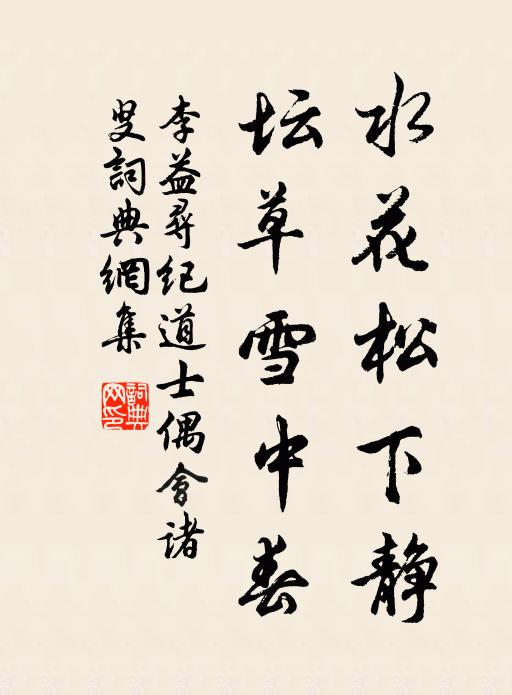 水花松下静
坛草雪中春
李益尋纪道士偶會诸
叟詞典網集
詞典网印